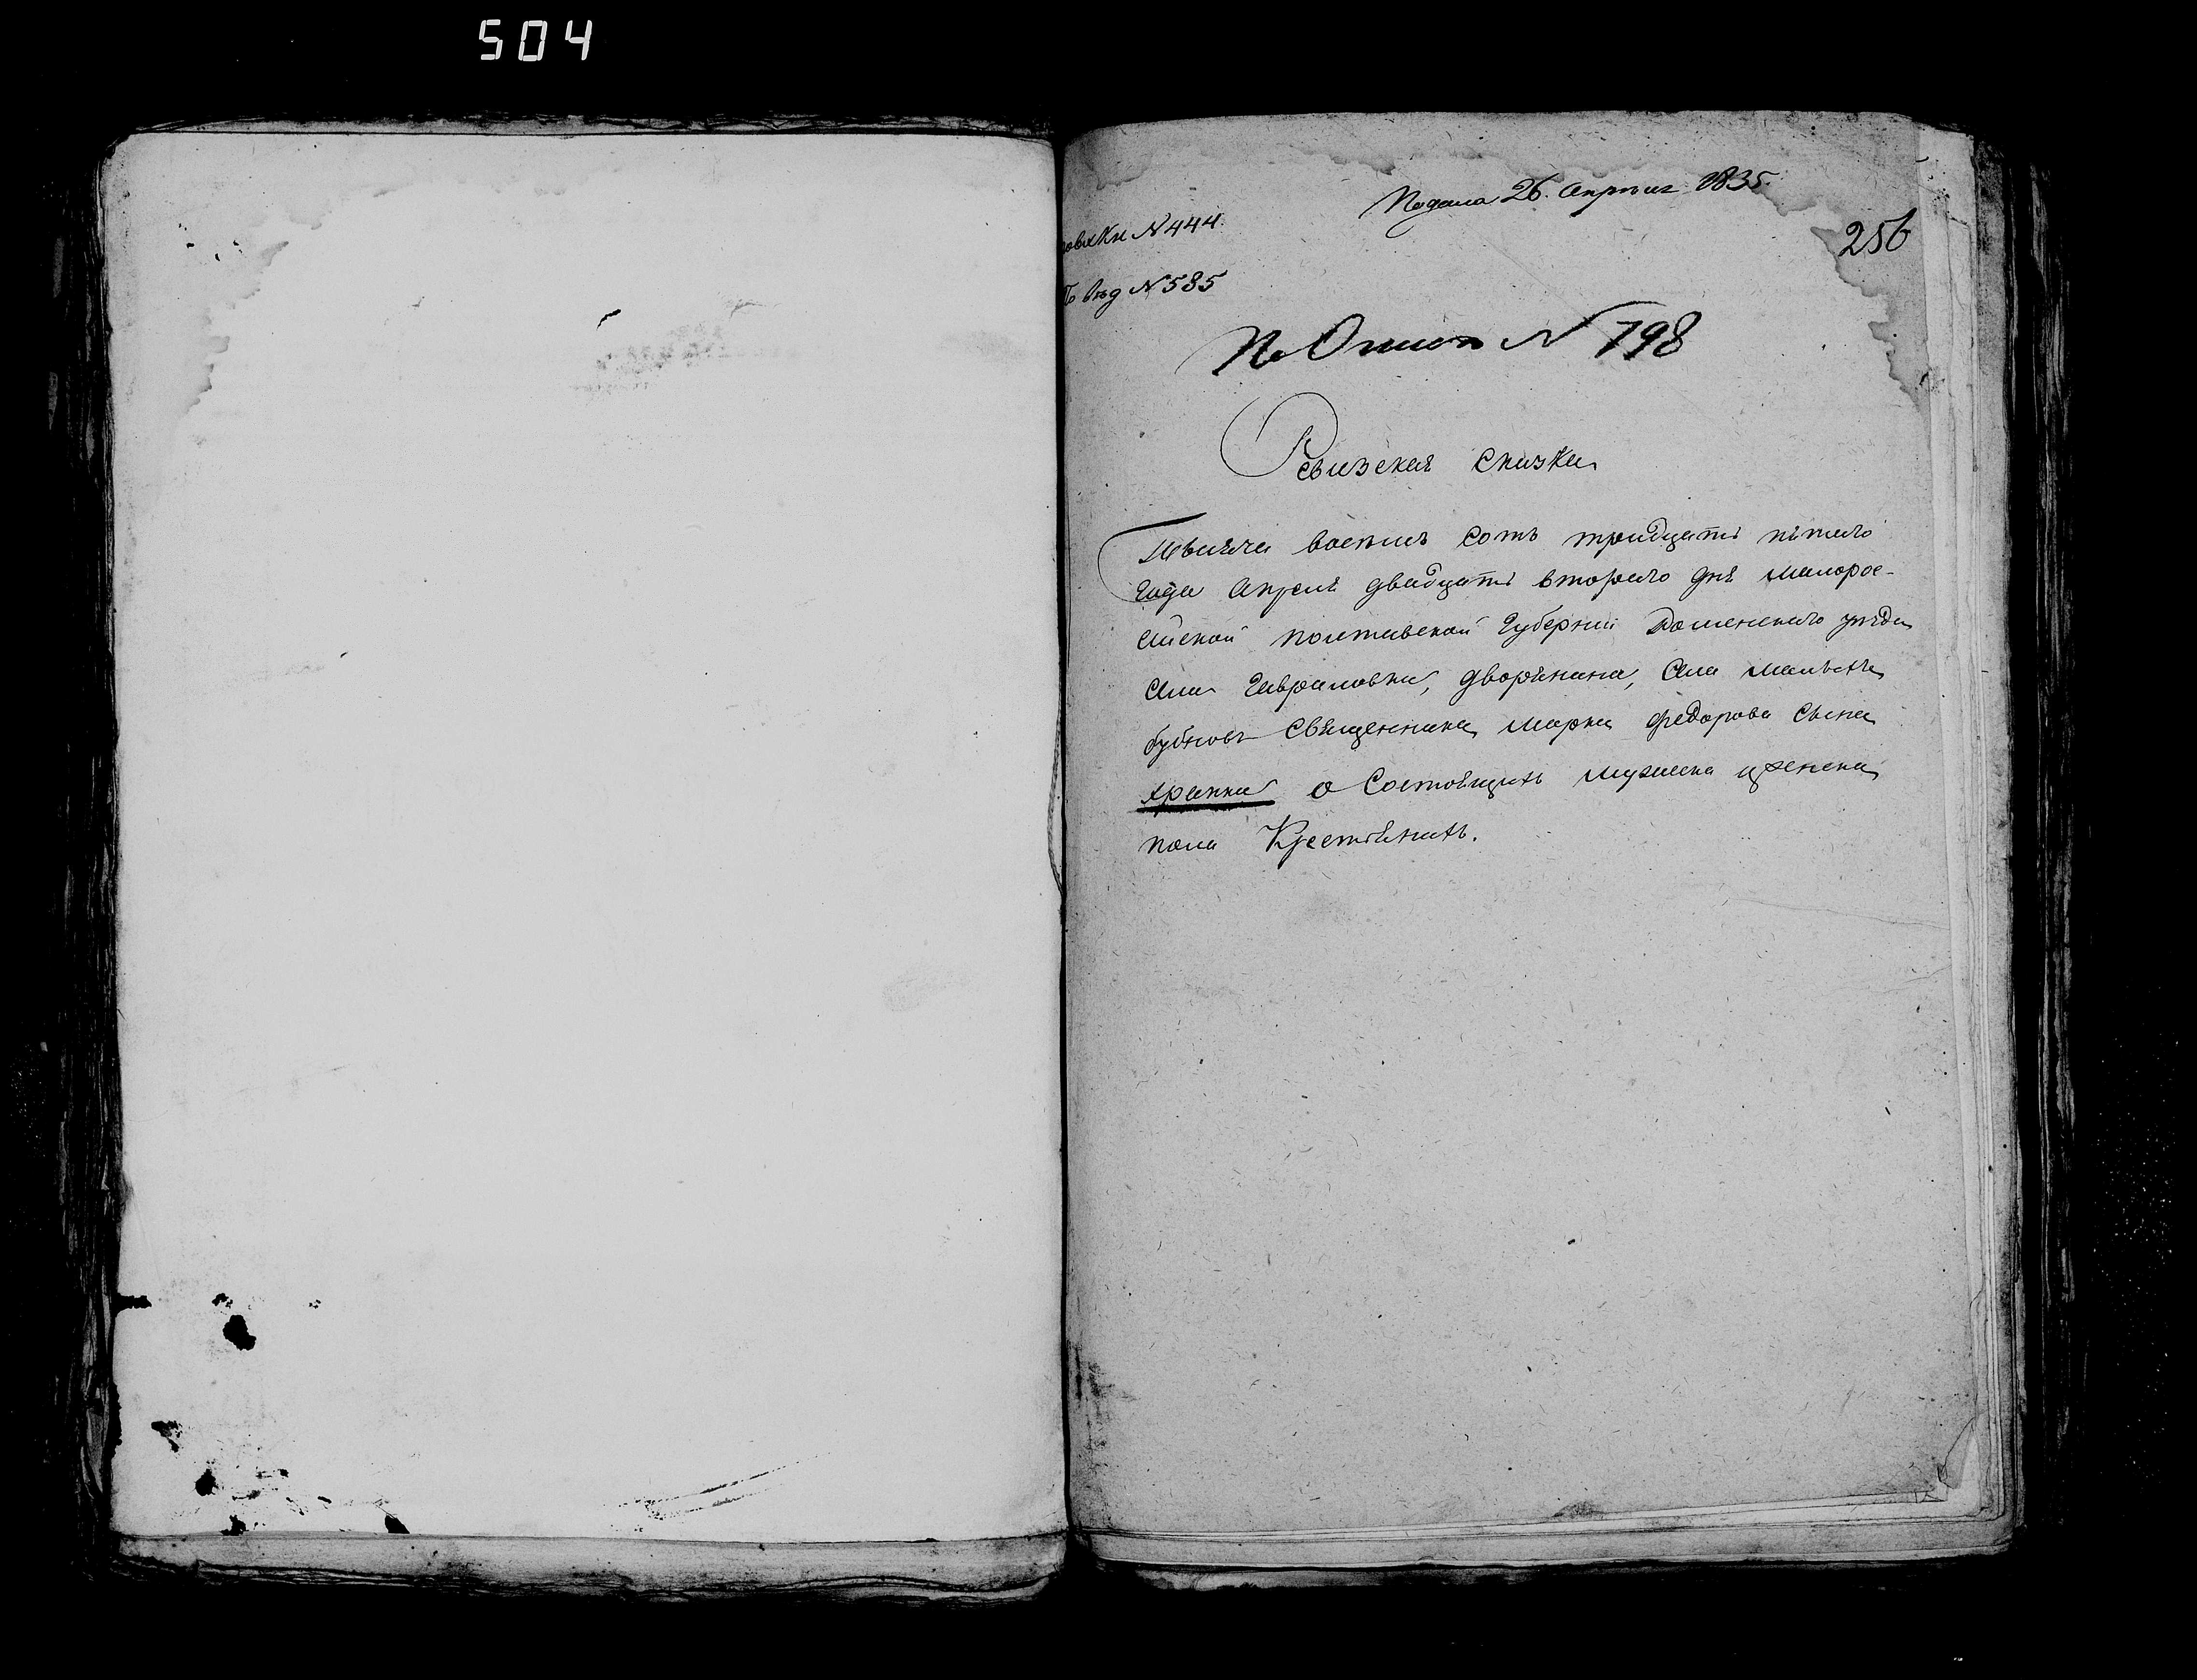 504
Подана 26. Апреля 1835.
256
овики N 444.
По вѣд N 585
По Описи N 798
Ревизская сказка
Тысяча восемь сотъ тридцать пятаго
года Апреля двадцать втораго дня Малорос-
сійской полтавской Губерніи Роменскаго уѣзда
села Гавриловки, дворянина, села малыхъ
бубновъ Священника Марка федорова сына
храпка о Состоящихъ мужеска и женска
пола Крестьянахъ.